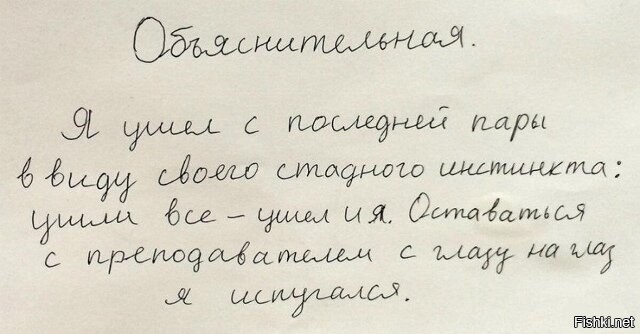 Объяснительная.
Я ушел с последней пары
в виду своего стадного инстинкта:
ушли все – ушел и я. Оставаться
с преподавателем с глазу на глаз
я испугался.
Fishki.net